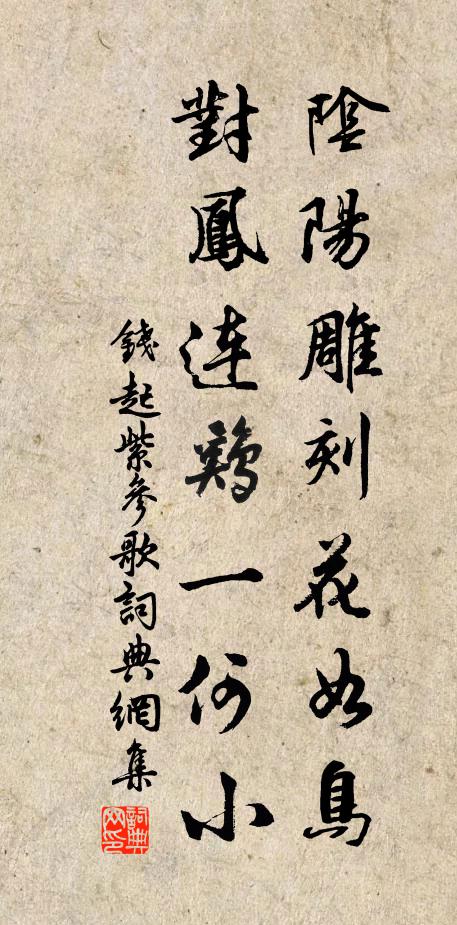 陰陽雕刻花如鳥
對鳳連鷄一何小
錢起紫參歌詞典網集
詞典網印